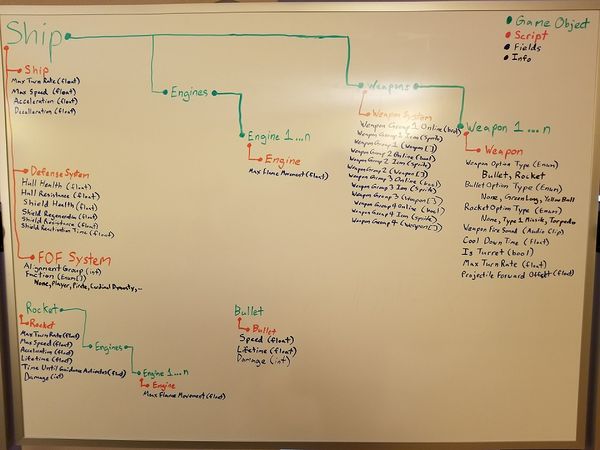 Ship
Game Object
Script
Fields
Info
Ship
Max Turn Rate (float)
Max Speed (float)
Acceleration (float)
Decelleration (float)
Engines
Engine 1...n
Engine
Max Flame Movement (float)
Weapons
Weapon System
Weapon Group 1 Online (bool)
Weapon Group 1 Icon (Sprite)
Weapon Group 1 (Weapon[])
Weapon Group 2 Online (bool)
Weapon Group 2 Icon (Sprite)
Weapon Group 2 (Weapon[])
Weapon Group 3 Online (bool)
Weapon Group 3 Icon (Sprite)
Weapon Group 3 (Weapon[])
Weapon Group 4 Online (bool)
Weapon Group 4 Icon (Sprite)
Weapon Group 4 (Weapon[])
Weapon 1...n
Weapon
Weapon Option Type (Enum)
Bullet, Rocket
Bullet Option Type (Enum)
None, Green Long, Yellow Ball
Rocket Option Type (Enum)
None, Type 1 Missile, Torpedo
Weapon Fire Sound (Audio Clip)
Cool Down Time (float)
Is Turret (bool)
Max Turn Rate (float)
Projectile Forward Offset (float)
Defense System
Hull Health (float)
Hull Resistance (float)
Shield Health (float)
Shield Regeneration (float)
Shield Resistance (float)
Shield Reactivation Time (float)
FOF System
Alignment Group (int)
Faction (Enum[])
None, Player, Pirate, Cardinal Dynasty,...
Rocket
Rocket
Max Turn Rate (float)
Max Speed (float)
Acceleration (float)
Lifetime (float)
Time Until Guidance Activates (float)
Damage (int)
Engines
Engine 1...n
Engine
Max Flame Movement (float)
Bullet
Bullet
Speed (float)
Lifetime (float)
Damage (int)